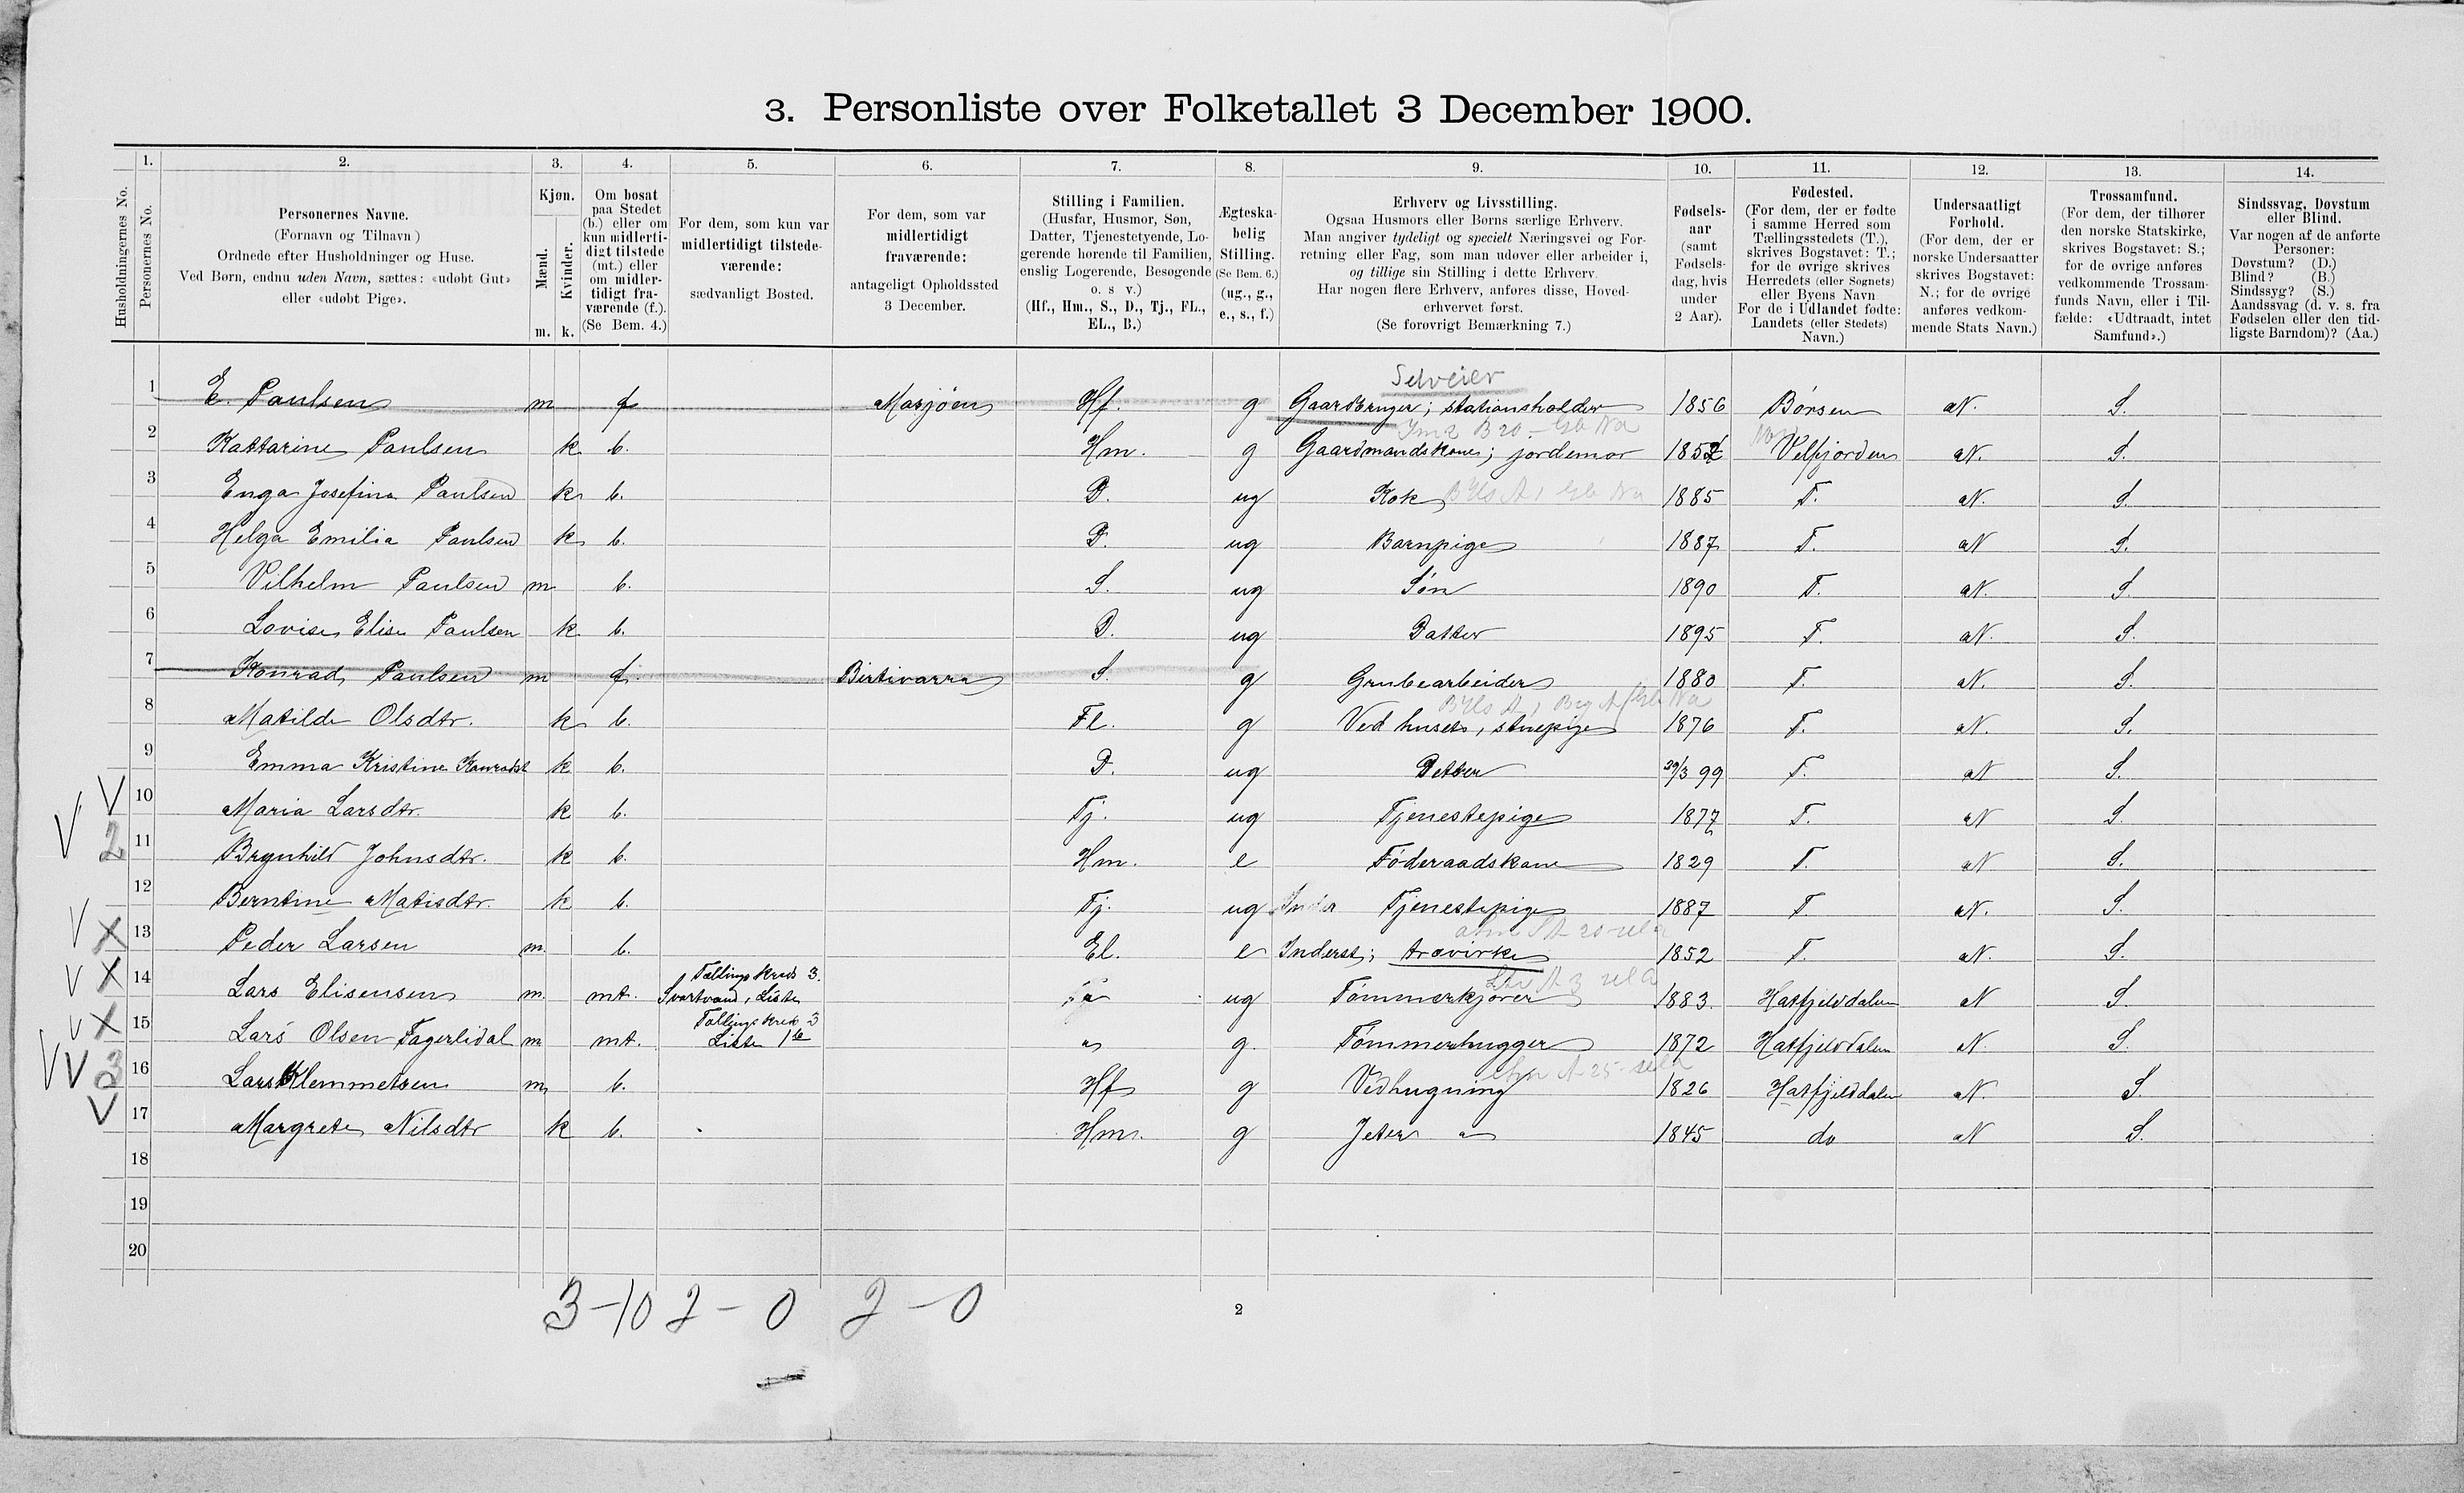 3. Personliste over Folketallet 3 December 1900.
1. 2. 3. 4. 5. 6. 7. 8. 9. 10. 11. 12. 13. 14.
Husholdningernes No.
Personernes No.
Personernes Navne.
(Fornavn og Tilnavn)
Ordnede efter Husholdninger og Huse.
Ved Børn, endnu uden Navn, sættes: «udøbt Gut»
eller «udøbt Pige».
Kjøn.
Mænd.
Kvinder.
m. k.
Om bosat
paa Stedet
(b.) eller om
kun midlerti-
digt tilstede
(mt.) eller
om midler-
tidigt fra-
værende (f.).
(Se Bem. 4.)
For dem, som kun var
midlertidigt tilstede-
værende:
sædvanligt Bosted.
For dem, som var
midlertidigt
fraværende:
antageligt Opholdssted
3 December.
Stilling i Familien.
(Husfar, Husmor, Søn,
Datter, Tjenestetyende, Lo-
gerende hørende til Familien,
enslig Logerende, Besøgende
o. s v.)
(Hf., Hm., S., D., Tj., FL.,
EL., B.)
Ægteska-
belig
Stilling.
(Se Bem. 6.)
(ug., g.,
e., s., f.)
Erhverv og Livsstilling.
Ogsaa Husmors eller Børns særlige Erhverv.
Man angiver tydeligt og specielt Næringsvei og For-
retning eller Fag, som man udøver eller arbeider i,
og tillige sin Stilling i dette Erhverv.
Har nogen flere Erhverv, anføres disse, Hoved-
erhvervet først.
(Se forøvrigt Bemærkning 7.)
Fødsels-
aar
(samt
Fødsels-
dag, hvis
under
2 Aar).
Fødested.
(For dem, der er fødte
i samme Herred som
Tællingsstedets (T.),
skrives Bogstavet: T.;
for de øvrige skrives
Herredets (eller Sognets)
eller Byens Navn
For de i Udlandet fødte:
Landets (eller Stedets)
Navn.)
Undersaatligt
Forhold.
(For dem, der er
norske Undersaatter
skrives Bogstavet:
N.; for de øvrige
anføres vedkom-
mende Stats Navn.)
Trossamfund.
(For dem, der tilhører
den norske Statskirke,
skrives Bogstavet: S.;
for de øvrige anføres
vedkommende Trossam-
funds Navn, eller i Til-
fælde: «Udtraadt, intet
Samfund».)
Sindssvag, Døvstum
eller Blind.
Var nogen af de anførte
Personer:
Døvstum? (D.)
Blind? (B.)
Sindssyg? (S.)
Aandssvag (d. v. s. fra
Fødselen eller den tid-
ligste Barndom)? (Aa.)
Selveier
1 E. Paulsen m f Mosjøen Hf. g Gaardbruger; stationsholder 1856 Børsen N. S.
2 Kattarine Paulsen k b. Hm. g Gaardmandskone; jordemor 1852 Velfjorden N. S.
3 Enga Josefine Paulsen k b. D. ug Kok 1885 T. N. S.
4 Helga Emilia Paulsen k b. D. ug Barnpige 1887 T. N S.
5 Vilhelm Paulsen m b. S. ug Søn 1890 T. N. S.
6 Lovise Elise Paulsen k b. D. ug Datter 1895 T. N. S.
7 Konrad Paulsen m f. Birtivarra S. g Grubearbeider 1880 T. N. S.
8 Matilde Olsdtr. k b. Fl. g Ved huset, stuepige 1876 T. N. S.
9 Emma Kristine Konradst k b. D. ug Detter 29/3 99 T. N S.
V 10 Maria Larsdtr. k b. Tj. ug Tjenestepige 1877 T. N S.
V 2 11 Brynhild Johnsdtr. k b. Hm. e Føderaadskone 1829 T. N S.
12 Berntine Matisdtr. k b. Tj. ug Tjenestepige 1887 T. N. S.
V X 13 Peder Larsen m. b. El. e Inderst; trævirke 1852 T. N. S.
Tællingskreds 3.
V X 14 Lars Elisensen m. mt. Svartvand, Liste " ug Tømmerkjører 1883. Hatfjelddalen N S.
Tællingskrek 3
V X 15 Lars Olsen Fagerlidal m mt. Liste 1te " g. Tømmerhugger 1872 Hatfjelddalen N. S.
V V 3 16 Lars Klemmetsen m b. Hf g Vedhugning 1826 Hatfjelddalen N. S.
V 17 Margrete Nilsdtr k b. Hm. g Jeter " 1845 do N S.
18
19
20
3-10 2-0 2-0
2